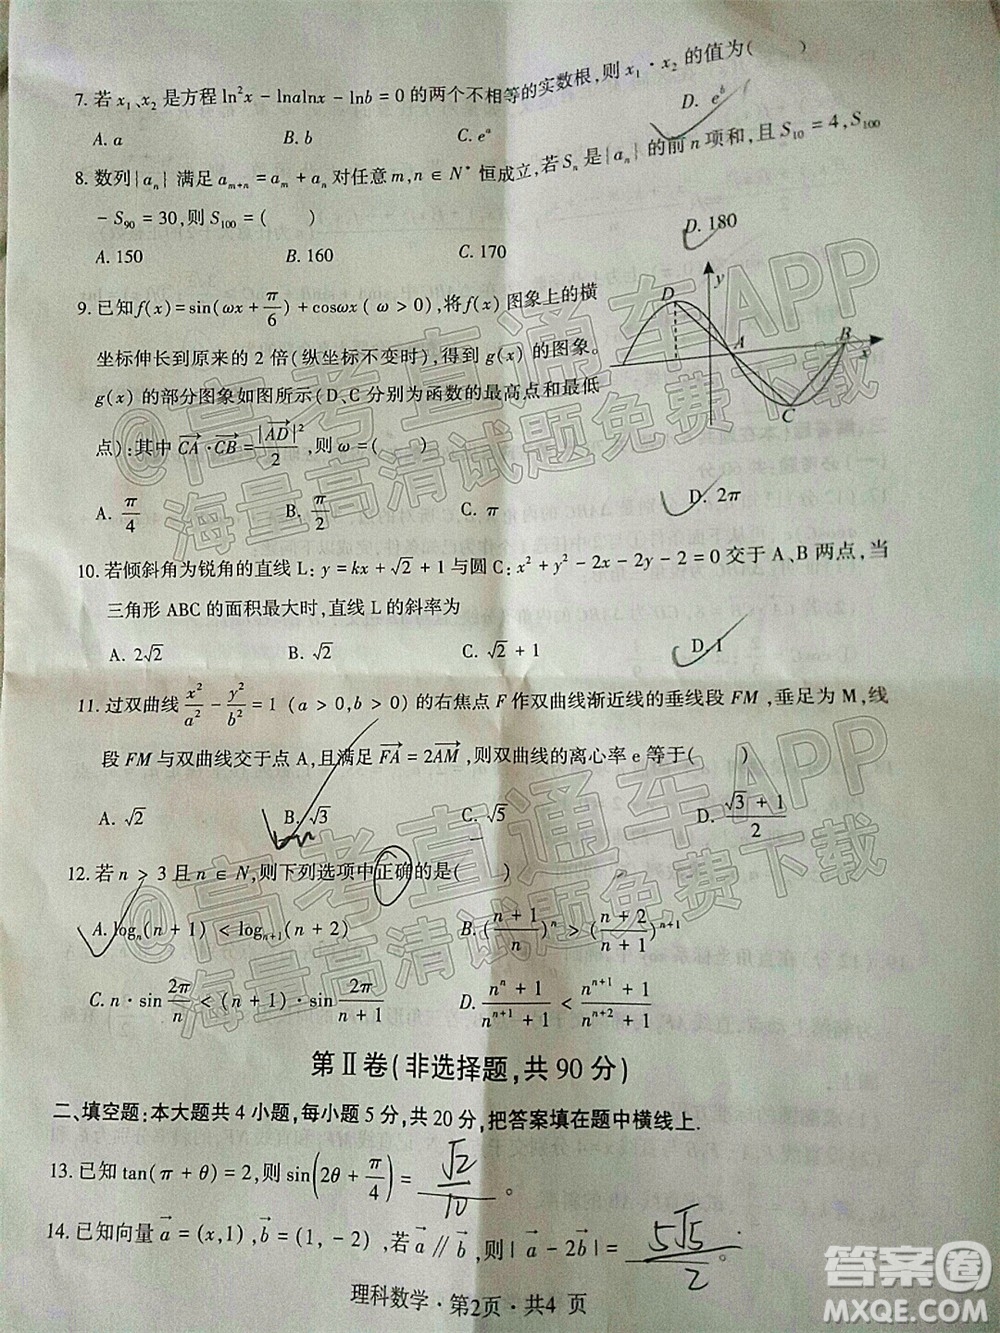 7. 若 x₁、x₂ 是方程 ln²x - lnalnx - lnb = 0 的两个不相等的实数根,则 x₁·x₂ 的值为(　　)
A. a　　B. b　　C. eᵃ　　D. eᵇ
8. 数列{aₙ}满足 aₘ₊ₙ = aₘ + aₙ 对任意 m,n ∈ N* 恒成立,若 Sₙ 是{aₙ}的前 n 项和,且 S₁₀ = 4,S₁₀₀
- S₉₀ = 30,则 S₁₀₀ = (　　)
A. 150　　B. 160　　C. 170　　D. 180
9. 已知 f(x) = sin(ωx + π/6) + cosωx ( ω > 0),将 f(x) 图象上的横
坐标伸长到原来的 2 倍(纵坐标不变时),得到 g(x) 的图象。
g(x) 的部分图象如图所示(D、C 分别为函数的最高点和最低
点):其中 CA⃗·CB⃗ = |AD⃗|²/2 ,则 ω = (　　)
D　y　A　B　x　C
A. π/4　　B. π/2　　C. π　　D. 2π
10. 若倾斜角为锐角的直线 L: y = kx + √2 + 1 与圆 C: x² + y² - 2x - 2y - 2 = 0 交于 A、B 两点, 当
三角形 ABC 的面积最大时, 直线 L 的斜率为
A. 2√2　　B. √2　　C. √2 + 1　　D. 1
11. 过双曲线 x²/a² - y²/b² = 1 ( a > 0,b > 0) 的右焦点 F 作双曲线渐近线的垂线段 FM,垂足为 M,线
段 FM 与双曲线交于点 A,且满足 FA⃗ = 2AM⃗ ,则双曲线的离心率 e 等于(　　)
A. √2　　B. √3　　C. √5　　D. (√3 + 1)/2
12. 若 n > 3 且 n ∈ N,则下列选项中正确的是(　　)
A. logₙ(n + 1) < logₙ₊₁(n + 2)　　B. ((n + 1)/n)ⁿ > ((n + 2)/(n + 1))ⁿ⁺¹
C. n·sin 2π/n < (n + 1)·sin 2π/(n + 1)　　D. (nⁿ + 1)/(nⁿ⁺¹ + 1) < (nⁿ⁺¹ + 1)/(nⁿ⁺² + 1)
第Ⅱ卷(非选择题,共 90 分)
二、填空题:本大题共 4 小题,每小题 5 分,共 20 分,把答案填在题中横线上.
13. 已知 tan(π + θ) = 2,则 sin(2θ + π/4) = √2/10 。
14. 已知向量 a⃗ = (x,1),b⃗ = (1, - 2) ,若 a⃗ ∥ b⃗, 则| a⃗ - 2b⃗| = 5√5/2 。
理科数学 · 第2页 · 共4 页
@高考直通车APP
海量高清试题免费下载
@高考直通车APP
海量高清试题免费下载
答案圈
MXQE.COM